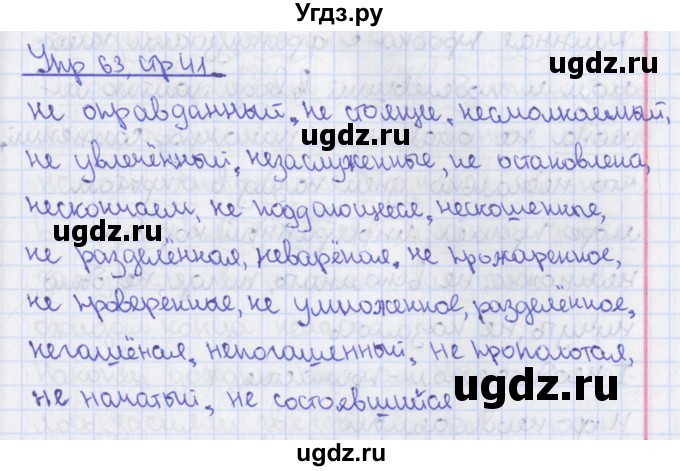 Угдз.ру
Упр 63, стр 41.
не оправданный, не стоящее, несмолкаемый,
ugdz.ru ugdz.ru
не увлечённый, незаслуженные, не остановлена,
нескончаем, не поддающееся, нескошенные,
ugdz.ru
не разделённая, неварёная, не прожаренное,
не проверенные, не умноженное, разделённое,
негашёная, непогашенный, не прополотая,
ugdz.ru
не начатый, не состоявшийся
ugdz.ru